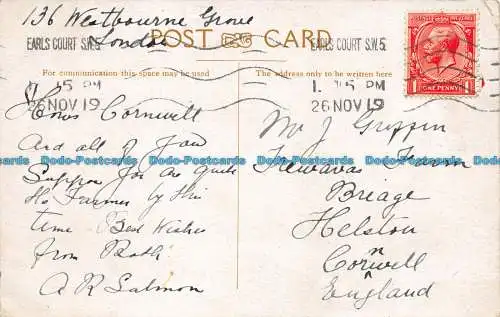 136 Westbourne Grove
London
POST CARD
EARLS COURT S.W.5.
EARLS COURT S.W.5.
For communication this space may be used
The address only to be written here
PM
26 NOV 19
1. 15 PM
26 NOV 19
POSTAGE REVENUE
1 ONE PENNY 1
Hows Cornwell
And all of you
Suppose you are quite
the Farmer by this
time Best Wishes
from
A R Salmon
Mr J Griffin
Farm
Breage
Helston
Cornwell
England
Dodo-Postcards Dodo-Postcards Dodo-Postcards Dodo-Postcards Dodo-Postcards
Dodo-Postcards Dodo-Postcards Dodo-Postcards Dodo-Postcards